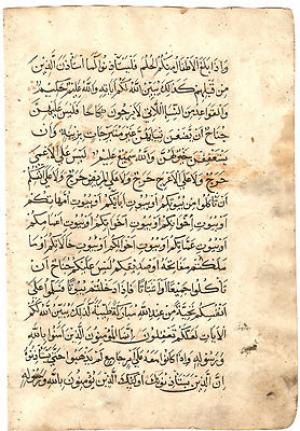 واذا بلغ الاطفال منكم الحلم فليستاذنوا كما استاذن الذين
من قبلهم كذلك يبين الله لكم اياته والله عليم حكيم
والقواعد من النسا اللاتي لا يرجون نكاحا فليس عليهن
جناح ان يضعن ثيابهن غير متبرجات بزينة وان
يستعففن خير لهن والله سميع عليم ليس على الاعمى
حرج ولا على الاعرج حرج ولا على المريض حرج ولا على انفسكم
ان تاكلوا من بيوتكم او بيوت ابائكم او بيوت امهاتكم
او بيوت اخوانكم او بيوت اخواتكم او بيوت اعمامكم
او بيوت عماتكم او بيوت اخوالكم او بيوت خالاتكم او ما
ملكتم مفاتحه او صديقكم ليس عليكم جناح ان
تاكلوا جميعا او اشتاتا فاذا دخلتم بيوتا فسلموا على
انفسكم تحية من عند الله مباركة طيبة كذلك يبين الله لكم
الايات لعلكم تعقلون انما المؤمنون الذين امنوا بالله
ورسوله واذا كانوا معه على امر جامع لم يذهبوا حتى يستاذنوه
ان الذين يستاذنونك اولئك الذين يؤمنون بالله ورسوله